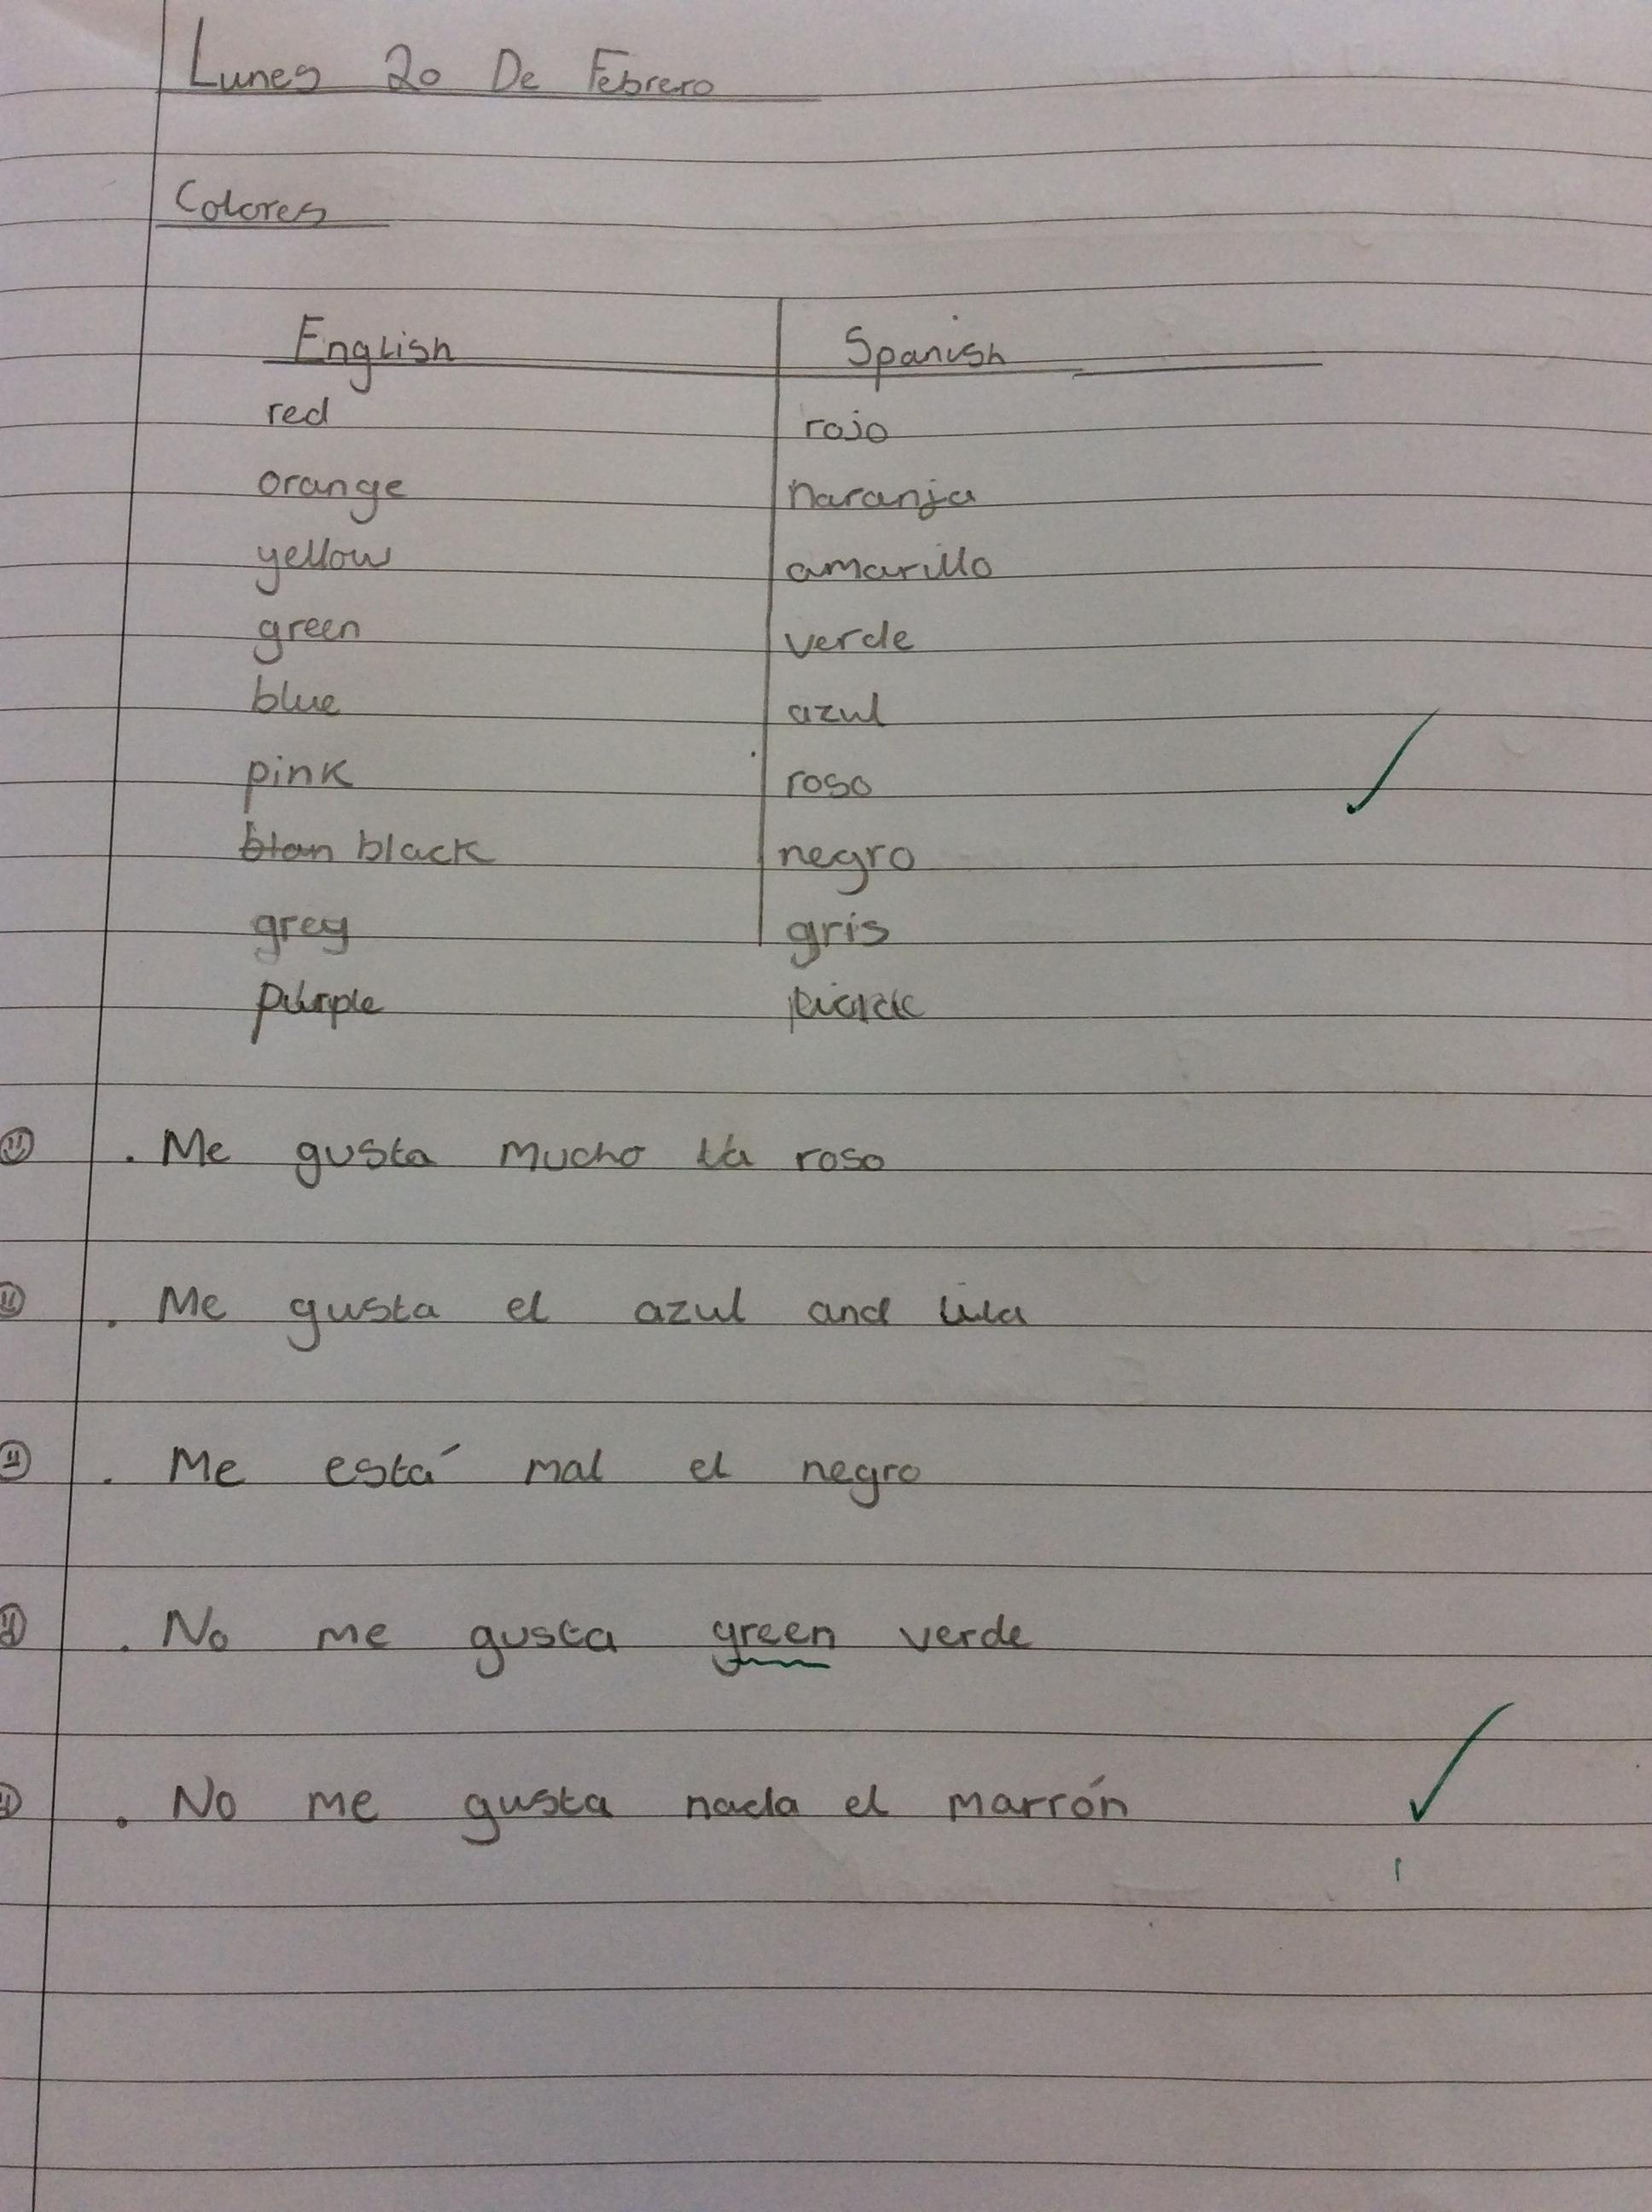 Lunes 20 De Febrero
Colores
English Spanish
red rojo
orange naranja
yellow amarillo
green verde
blue azul
pink roso
blan black negro
grey gris
purple
. Me gusta mucho la roso
. Me gusta el azul and lila
. Me está mal el negro
. No me gusta green verde
. No me gusta nada el marrón